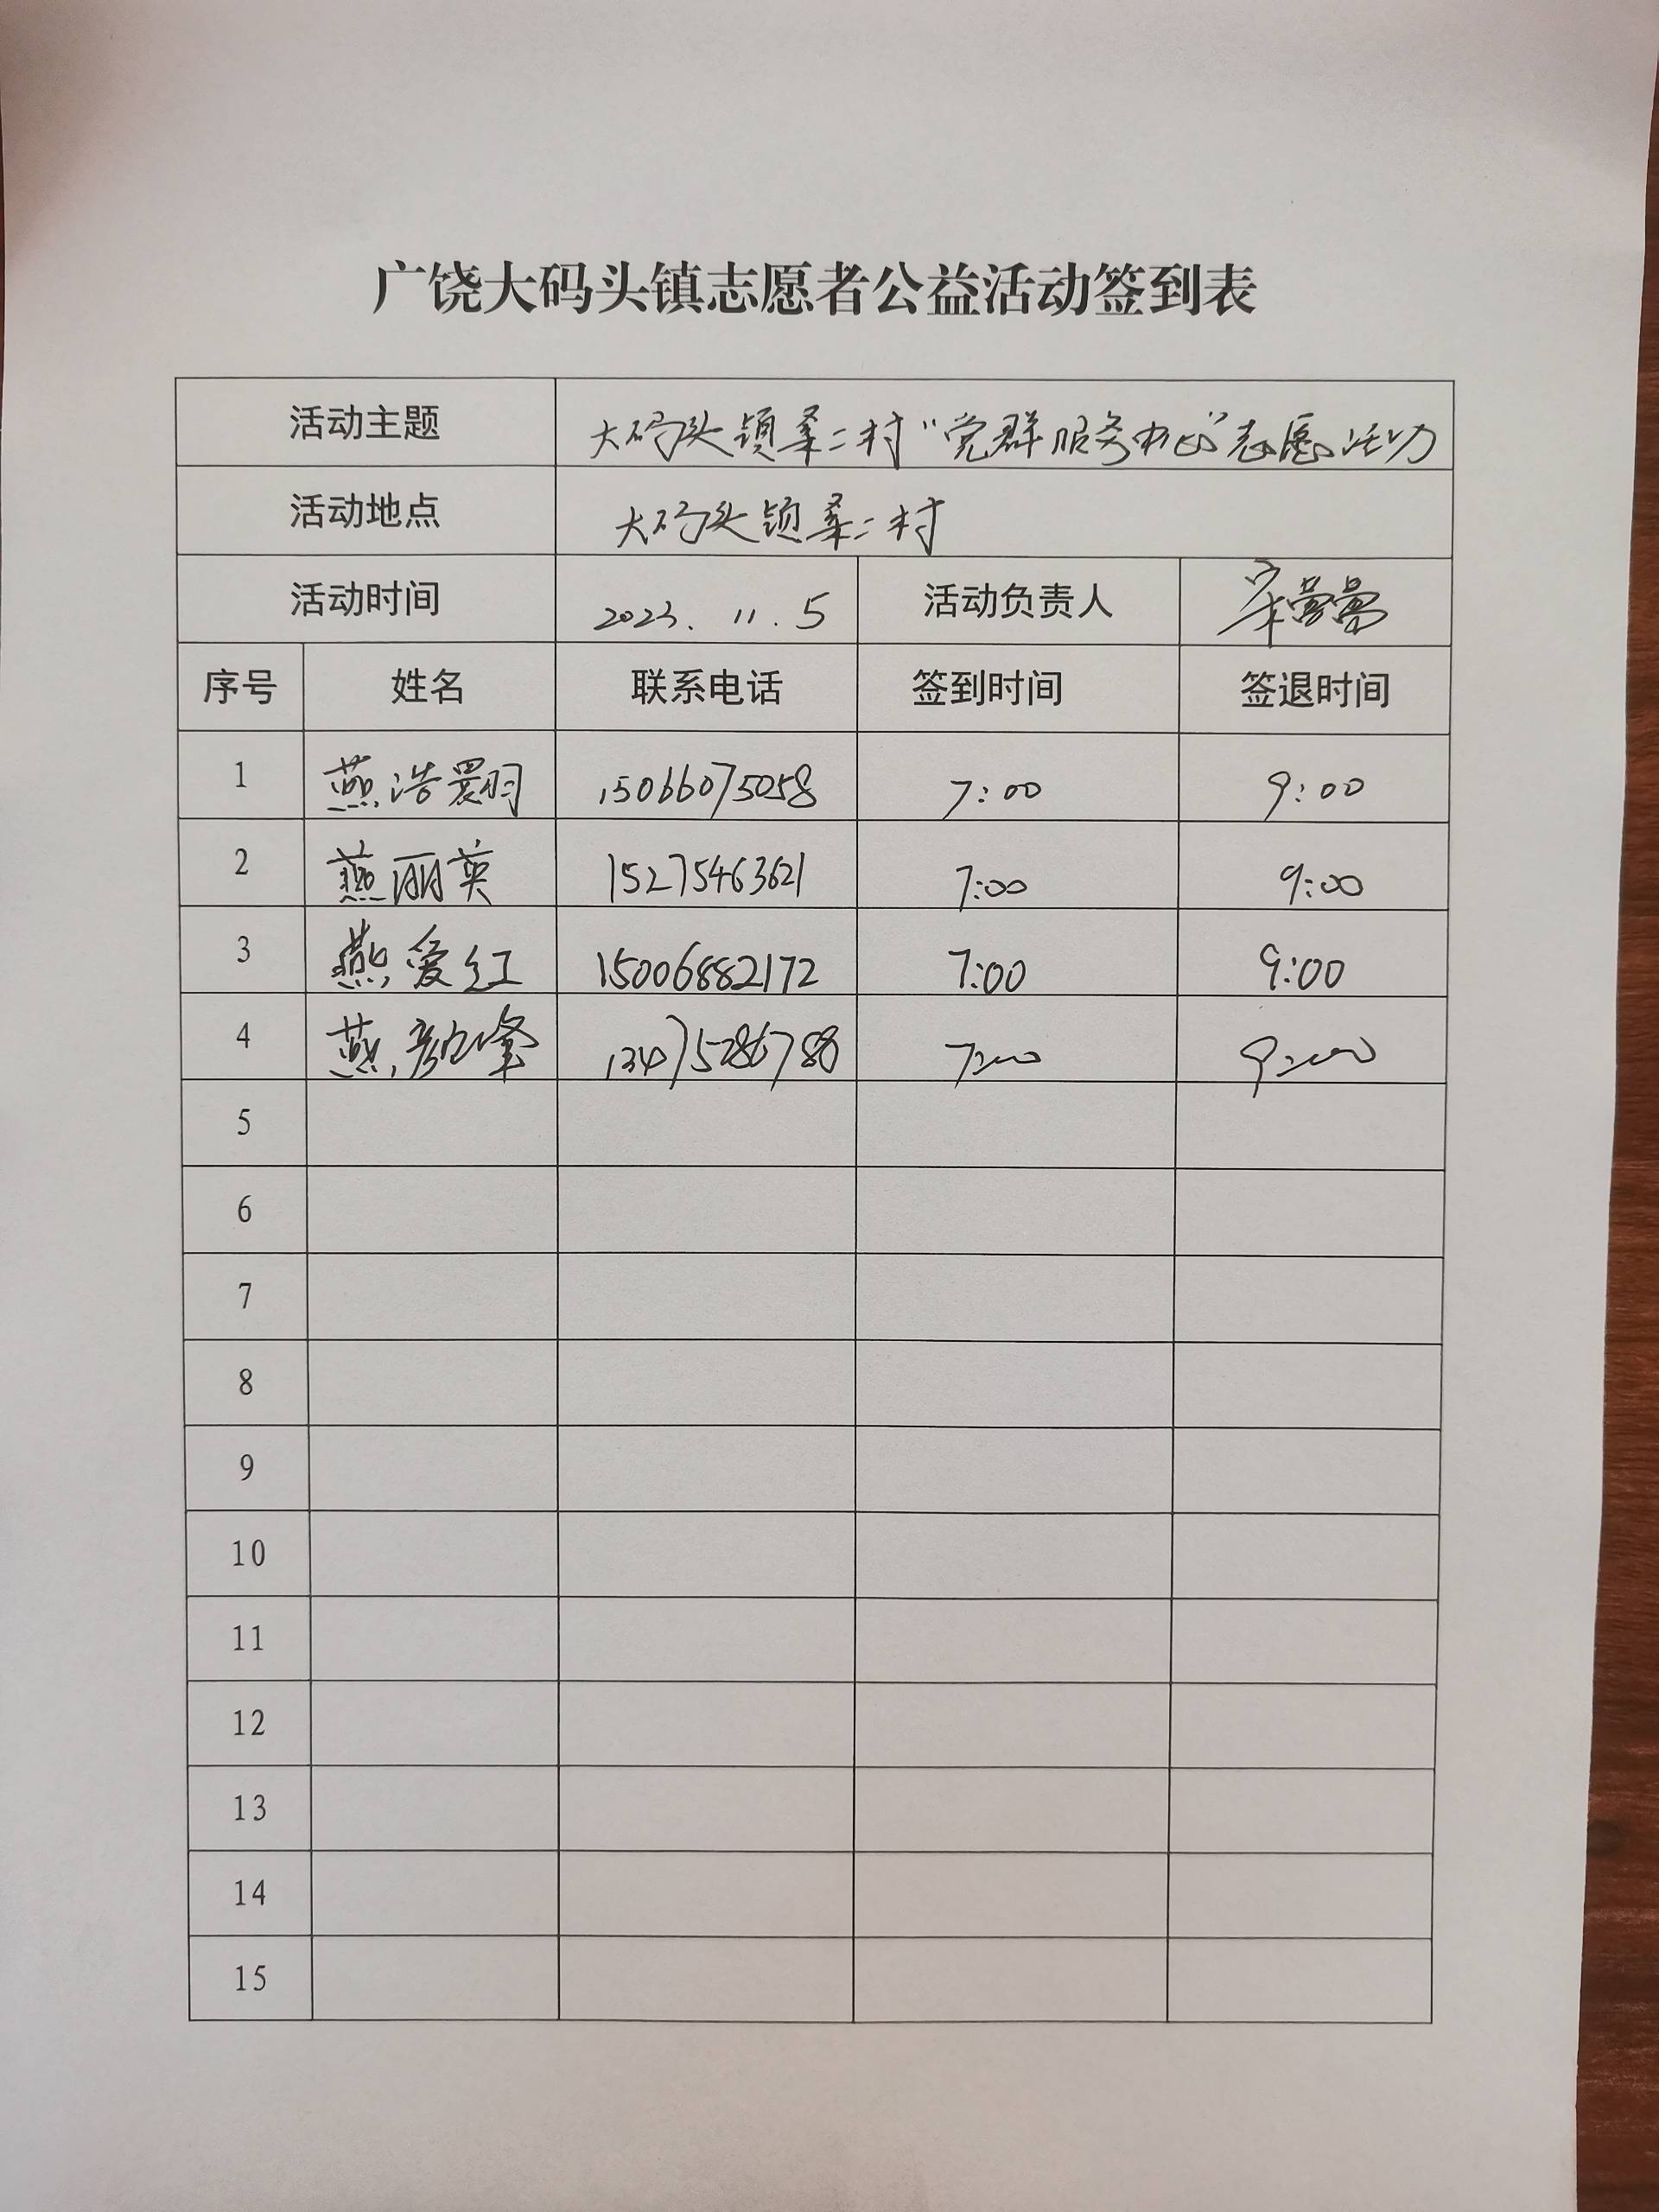 广饶大码头镇志愿者公益活动签到表
活动主题 大码头镇桑二村“党群服务中心”志愿活动
活动地点 大码头镇桑二村
活动时间 2023.11.5 活动负责人
序号 姓名 联系电话 签到时间 签退时间
1 燕浩 15066075058 7:00 9:00
2 燕丽英 15275463621 7:00 9:00
3 燕爱红 15006882172 7:00 9:00
4 燕 峰 7:00 9:00
5
6
7
8
9
10
11
12
13
14
15